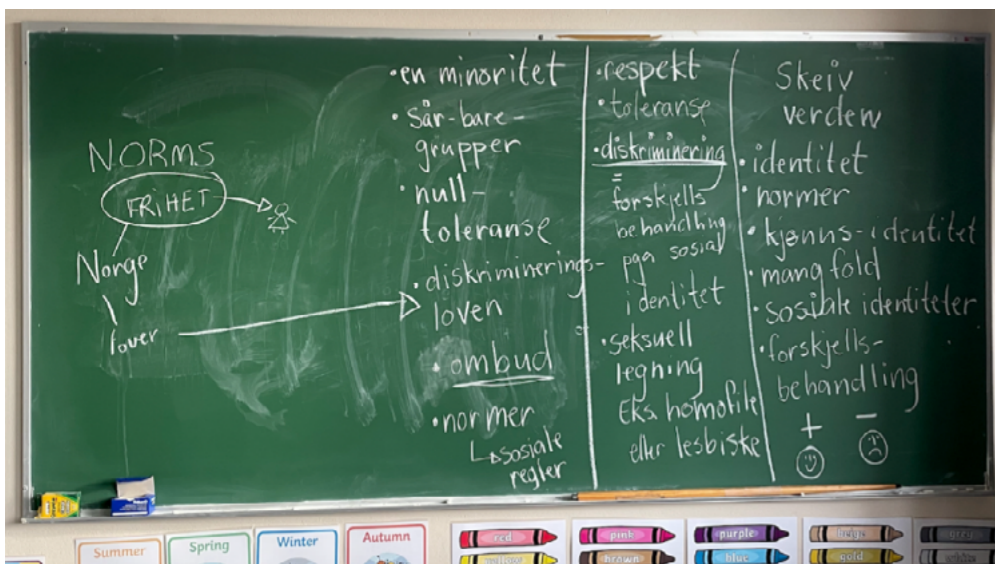 NORMS
FRIHET
Norge
lover
•en minoritet
•Sår-bare-
grupper
•null-
toleranse
•diskriminerings-
loven
•ombud
•normer
sosiale
regler
•respekt
•toleranse
•diskriminering
=
forskjells
behandling
pga sosial
identitet
•seksuell
legning
Eks. homofile
eller lesbiske
Skeiv
verden
•identitet
•normer
•kjønns-identitet
•mangfold
•sosiale identiteter
•forskjells-
behandling
+ –
Summer
Spring
Winter
Autumn
red
pink
purple
beige
grey
yellow
brown
blue
gold
white